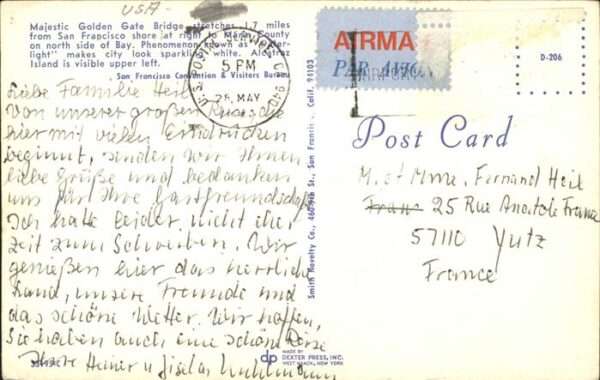 USA-
Majestic Golden Gate Bridge stretches 1.7 miles
from San Francisco shore at right to Marin County
on north side of Bay. Phenomenon known as "water-
light" makes city look sparkling white. Alcatraz
Island is visible upper left.
San Francisco Convention & Visitors Bureau
U.S. POSTAL SERVICE CA
5 PM
26 MAY
AIRMA
PAR AVION
D-206
Post Card
Liebe Familie Heil
Von unserer großen Reise, die
hier mit vielen Eindrücken
beginnt, senden wir Ihnen
liebe Grüße und bedanken
uns für Ihre Gastfreundschaft
Ich hatte leider nicht eher
Zeit zum Schreiben. Wir
genießen hier das herrliche
Land, unsere Freunde und
das schöne Wetter. Wir hoffen,
Sie haben auch eine schöne Reise
Ihre Heiner u Gisela
Smith Novelty Co., 460 9th St., San Francisco, Calif. 94103
M. et Mme. Fernand Heil
25 Rue Anatole France
57110 Yutz
France
dp
MADE BY
DEXTER PRESS, INC.
WEST NYACK, NEW YORK